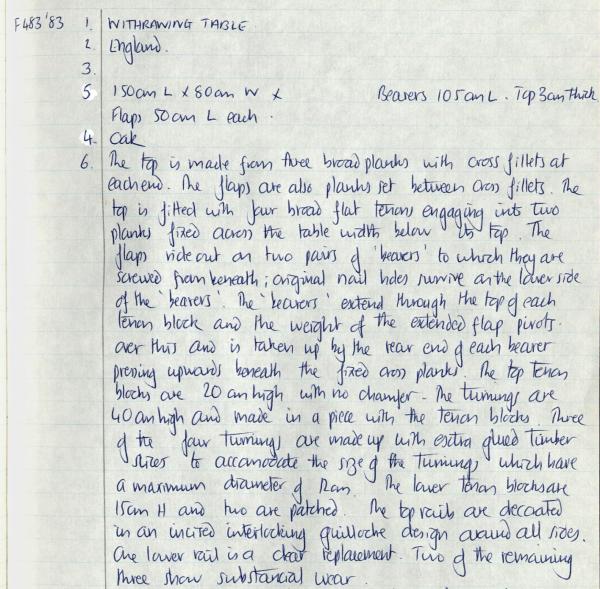 F483'83 1. WITHRAWING TABLE
2. England.
3.
5 150cm L x 80cm W x Bearers 105cm L. Top 3cm thick
Flaps 50cm L each.
4. Oak
6. The top is made from three broad planks with cross fillets at
each end. The flaps are also planks set between cross fillets. The
top is fitted with four broad flat tenons engaging into two
planks fixed across the table width below its top. The
flaps ride out on two pairs of 'bearers' to which they are
screwed from beneath; original nail holes survive on the lower side
of the 'bearers'. The 'bearers' extend through the top of each
tenon block and the weight of the extended flap pivots
over this and is taken up by the rear end of each bearer
pressing upwards beneath the fixed cross planks. The top tenon
blocks are 20cm high with no chamfer. The turnings are
40cm high and made in a piece with the tenon blocks. Three
of the four turnings are made up with extra glued timber
slices to accomodate the size of the turnings which have
a maximum diameter of 12cm. The lower tenon blocks are
15cm H and two are patched. The top rails are decorated
in an incited interlocking guilloche design around all sides.
One lower rail is a clear replacement. Two of the remaining
three show substantial wear.